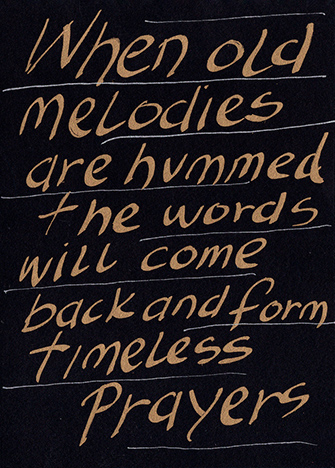 When old
melodies
are hummed
the words
will come
back and form
timeless
Prayers